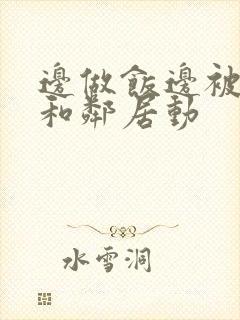 邊做飯邊被
和鄰居動
水雪洞